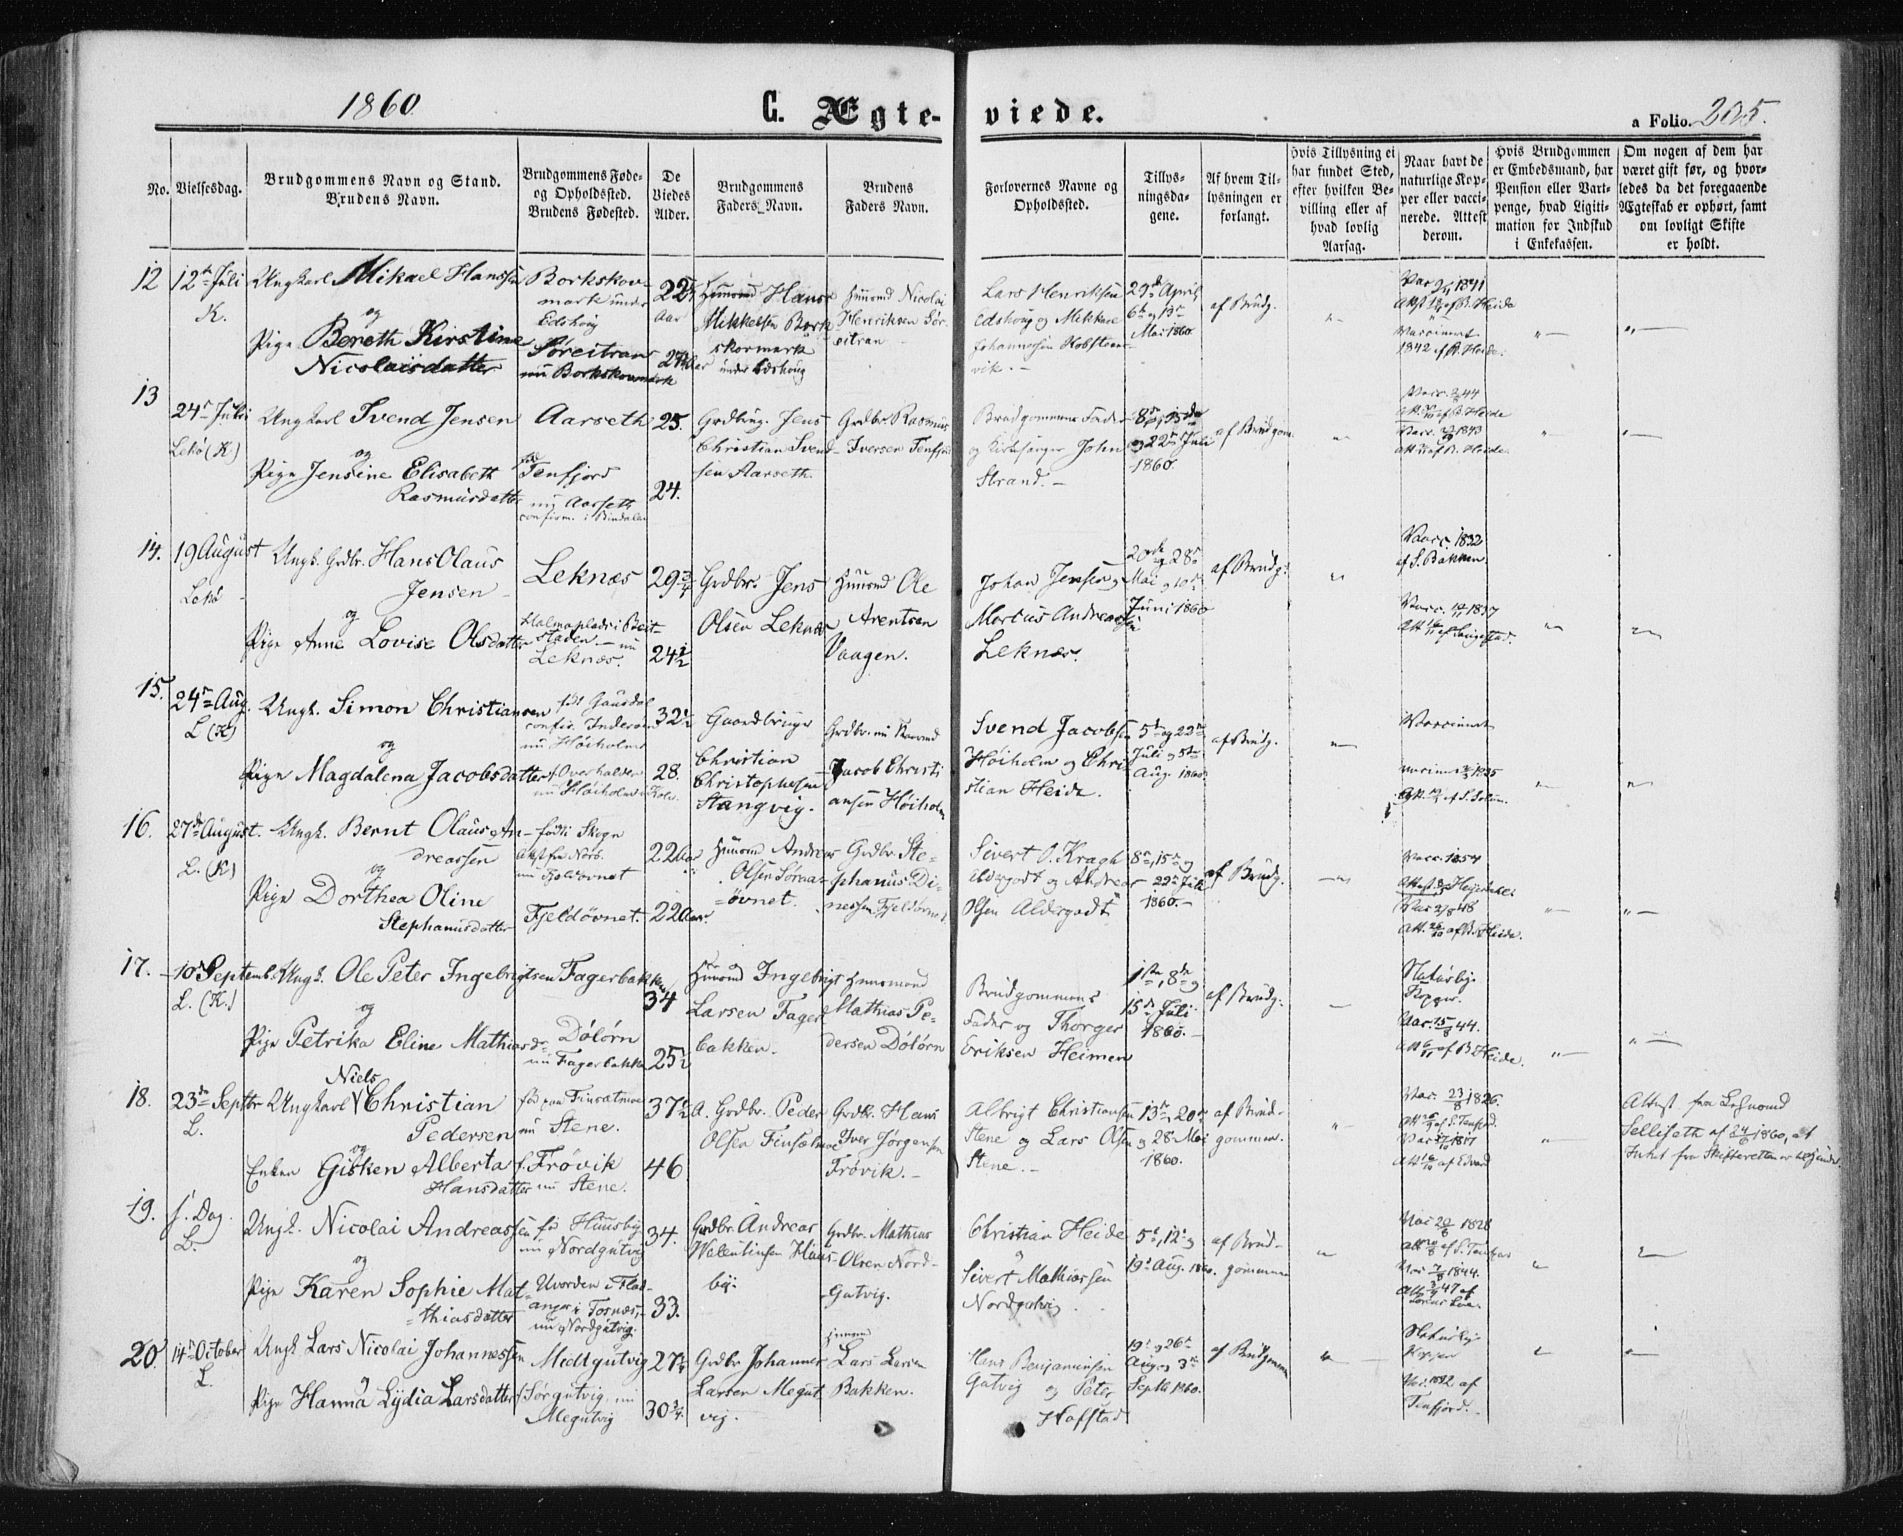 1860
C. Ægte-
viede.
a Folio. 205.
No.
Vielsesdag.
Brudgommens Navn og Stand.
Brudens Navn.
Brudgommens Føde-
og Opholdssted.
Brudens Fødested.
De
Viedes
Alder.
Brudgommens
Faders Navn.
Brudens
Faders Navn.
Forlovernes Navne og
Opholdssted.
Tillys-
ningsda-
gene.
Af hvem Til-
lysningen er
forlangt.
Hvis Tillysning ei
har fundet Sted,
efter hvilken Be-
villing eller af
hvad lovlig
Aarsag.
Naar havt de
naturlige Kop-
per eller vacci-
nerede. Attest
derom.
Hvis Brudgommen
er Embedsmand, har
Pension eller Vart-
penge, hvad Ligiti-
mation for Indskud
i Enkekassen.
Om nogen af dem har
været gift før, og hvor-
ledes da det foregaaende
Ægteskab er ophørt, samt
om lovligt Skifte
er holdt.
12
12te Juli
K.
Ungkarl Mikael Hanssen
og
Pige Bereth Kirstine
Nicolaisdatter
Borkskov-
mark under
Edshoug
Søreitran
nu Borkskovmark
22½
Aar
Huusmd Hans
Mikkelsen Bork
skovmark
under Edshoug
Huusmd Nicolai
Henriksen Sør-
eitran
Lars Henriksen
Edshoug og Mikkael
Johannesen Kobsteen-
vik.
29de April
6te og 13de
Mai 1860.
af Brudg.
Vaccineret
1842 af B. Heide.
13
24de Juli
Lekø (K)
Ungkarl Svend Jensen
og
Pige Jensine Elisabeth
Rasmusdatter
Aarseth
Tenfjord
nu Aarseth
confirm. i Bindalen
25.
24.
Grdbrug. Jens
Christian Svend-
sen Aarseth.
Grdbr. Rasmus
Iversen Tenfjord
Brudgommens Fader
og Kirkesanger John
Strand.
8de, 15de
og 22de Juli
1860.
af Brudgom.
14.
19 August
Lekø
Ungk. Grdbr. Hans Olaus
Jensen
og
Pige Anne Lovise Olsdatter
Leknæs
Malmoplads i Beit-
staden nu
Leknæs.
29¾
24½
Grdbr. Jens
Olsen Leknæs
Huusmd Ole
Arentsen
Vaagen.
Johan Jensen og
Marcus Andreassen
Leknæs.
20de og 28de
Mai og 10de
Juni 1860
af Brudg:
Vacc. 1832
af S. Bakken
15.
24de Aug.
L (K)
Ungk. Simon Christiansen
og
Pige Magdalena Jacobsdatter
født Gausdal
confir. Inderøen
nu Høiholmen
f. Overhalden
nu Høiholmen
32½
28.
Gaardbruger
Christian
Christophersen
Stangvig.
Grdbr. nu Kaarmd
Jacob Christi
ansen Høiholm
Svend Jacobsen
Høiholm og Chri
stian Heide.
5te og 22de
Juli og 5te
Aug. 1860.
af Brudg.
Vaccineret
16.
27de August.
L. (K)
Ungk. Bernt Olaus An-
dreassen
og
Pige Dorthea Oline
Stephanusdatter
født i Skogn
nu Fjeldøvnet
Fjeldøvnet.
22 Aar
22 Aar
Huusmd Andreas
Olsen Søraa-
øvnet.
Grdbr. Ste-
phanus Di-
nessen Fjeldøvnet
Sivert O. Kragh
Aldergodt og Andreas
Olsen Aldergodt
8de, 15de og
22de Juli
1860.
af Brudg.
Vacc. 1854
17.
10de Septemb.
L. (K.)
Ungk. Ole Peter Ingebrigtsen
og
Pige Petrika Eline Mathiasdr
Fagerbakken
Dølørn
nu Fagerbakken
34
25½
Huusmd Ingebrigt
Larsen Fager
bakken.
Huusmand
Mathias Pe-
dersen Dølørn
Brudgommens
Fader og Thorger
Eriksen Heimen
1ste, 8de og
15de Juli
1860.
af Brudg:
Naturlige
Kopper.
Vac. 15/8 44.
Att 6/11 af B. Heide.
18.
23de Septbr
L.
Niels
Ungkarl Christian
Pedersen
og
Enken Gisken Alberta
Hansdatter
fød paa Finsætmoe
nu Stene.
f. Frøvik
nu Stene.
37½
46
A. Grdbr. Peder
Olsen Finsætmoe
Grdbr. Hans
Iver Jørgensen
Frøvik.
Albrigt Christiansen
Stene og Lars Olsen
Stene.
13de, 20de
og 28de Mai
1860.
af Brud-
gommen.
Vac. 23/8 1826.
Attest fra Lehnsmd
Sellisæth af 24/6 1860, at
Intet fra Skifteretten er til hinder
19.
s. Dag.
L.
Ungk. Nicolai Andreassen
og
Pige Karen Sophie Mat-
thiasdatter
fød Huusby
nu Nordgutvig
Uvorden i Flad-
anger i Fosnæs,
nu Nordgutvig.
34.
33.
Grdbr. Andreas
Walentinsen Huus-
by.
Grdbr. Mathias
Olsen Nord-
Gutvig.
Christian Heide
Sivert Mathiassen
Nordgutvig
5te, 12te og
19de Aug. 1860.
af Brud-
gommen
Vac 20/8 1828
Vac 7/8 1844.
20.
14de October
L.
Ungk Lars Nicolai Johannessen
og
Pige Hanna Lydia Larsdatter
Medtgutvig
f. Sørgutvig nu
Megutvig
27½
30¾.
Grdbr Johannes
Larsen Megut
vig.
Huusmd
Lars Larsen
Bakken.
Hans Benjaminsen
Gutvig og Peter
Hofstad
19de og 26de
Aug og 3de
Septb 1860.
af Brudgommen
Naturlige
Kopper
Vac. 1842 af
Tenfjord.